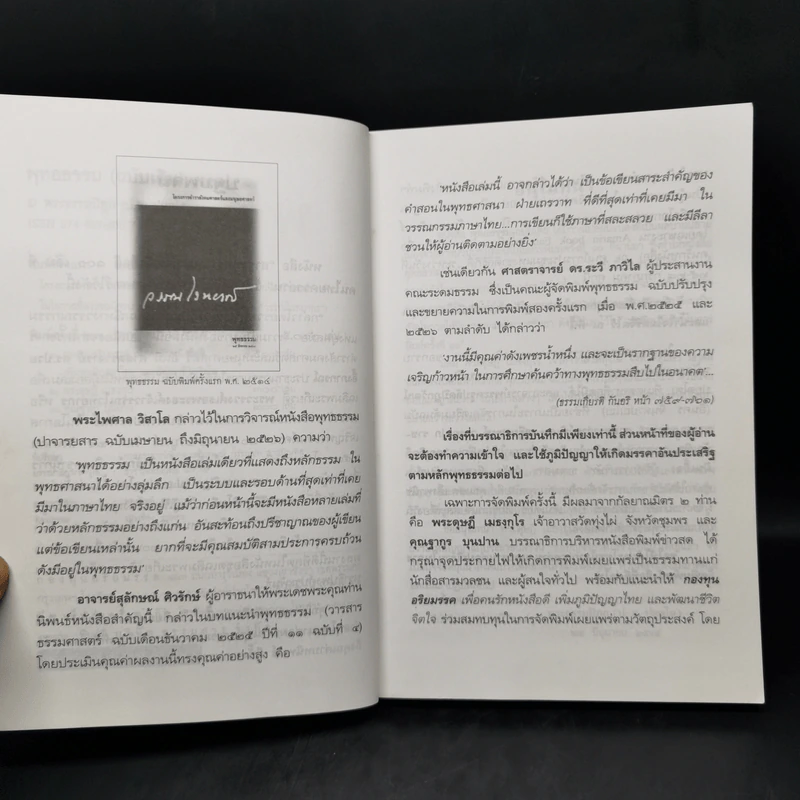 โครงการตำราสังคมศาสตร์และมนุษยศาสตร์
พุทธธรรม
พุทธธรรม ฉบับพิมพ์ครั้งแรก พ.ศ. ๒๕๑๔
พระไพศาล วิสาโล กล่าวไว้ในการวิจารณ์หนังสือพุทธธรรม
(ปาจารยสาร ฉบับเมษายน ถึงมิถุนายน ๒๕๒๖) ความว่า
'พุทธธรรม เป็นหนังสือเล่มเดียวที่แสดงถึงหลักธรรม ใน
พุทธศาสนาได้อย่างลุ่มลึก เป็นระบบและรอบด้านที่สุดเท่าที่เคย
มีมาในภาษาไทย จริงอยู่ แม้ว่าก่อนหน้านี้จะมีหนังสือหลายเล่มที่
ว่าด้วยหลักธรรมอย่างถึงแก่น อันสะท้อนถึงปรีชาญาณของผู้เขียน
แต่ข้อเขียนเหล่านั้น ยากที่จะมีคุณสมบัติสามประการครบถ้วน
ดังมีอยู่ในพุทธธรรม'
อาจารย์สุลักษณ์ ศิวรักษ์ ผู้อาราธนาให้พระเดชพระคุณท่าน
นิพนธ์หนังสือสำคัญนี้ กล่าวในบทแนะนำพุทธธรรม (วารสาร
ธรรมศาสตร์ ฉบับเดือนธันวาคม ๒๕๒๕ ปีที่ ๑๑ ฉบับที่ ๔)
โดยประเมินคุณค่าผลงานนี้ทรงคุณค่าอย่างสูง คือ
'หนังสือเล่มนี้ อาจกล่าวได้ว่า เป็นข้อเขียนสาระสำคัญของ
คำสอนในพุทธศาสนา ฝ่ายเถรวาท ที่ดีที่สุดเท่าที่เคยมีมา ใน
วรรณกรรมภาษาไทย...การเขียนก็ใช้ภาษาที่สละสลวย และมีลีลา
ชวนให้ผู้อ่านติดตามอย่างยิ่ง'
เช่นเดียวกัน ศาสตราจารย์ ดร.ระวี ภาวิไล ผู้ประสานงาน
คณะระดมธรรม ซึ่งเป็นคณะผู้จัดพิมพ์พุทธธรรม ฉบับปรับปรุง
และขยายความในการพิมพ์สองครั้งแรก เมื่อ พ.ศ.๒๕๒๕ และ
๒๕๒๖ ตามลำดับ ได้กล่าวว่า
'งานนี้มีคุณค่าดังเพชรน้ำหนึ่ง และจะเป็นรากฐานของความ
เจริญก้าวหน้า ในการศึกษาค้นคว้าทางพุทธธรรมสืบไปในอนาคต'...
(ธรรมเกียรติ กันอริ หน้า ๗๕๙-๗๖๑)
เรื่องที่บรรณาธิการบันทึกมีเพียงเท่านี้ ส่วนหน้าที่ของผู้อ่าน
จะต้องทำความเข้าใจ และใช้ภูมิปัญญาให้เกิดมรรคาอันประเสริฐ
ตามหลักพุทธธรรมต่อไป
เฉพาะการจัดพิมพ์ครั้งนี้ มีผลมาจากกัลยาณมิตร ๒ ท่าน
คือ พระดุษฎี เมธงฺกุโร เจ้าอาวาสวัดทุ่งไผ่ จังหวัดชุมพร และ
คุณฐากูร บุนปาน บรรณาธิการบริหารหนังสือพิมพ์ข่าวสด ได้
กรุณาจุดประกายไฟให้เกิดการพิมพ์เผยแพร่เป็นธรรมทานแก่
นักสื่อสารมวลชน และผู้สนใจทั่วไป พร้อมกับแนะนำให้ กองทุน
อริยมรรค เพื่อคนรักหนังสือดี เพิ่มภูมิปัญญาไทย และพัฒนาชีวิต
จิตใจ ร่วมสมทบทุนในการจัดพิมพ์เผยแพร่ตามวัตถุประสงค์ โดย